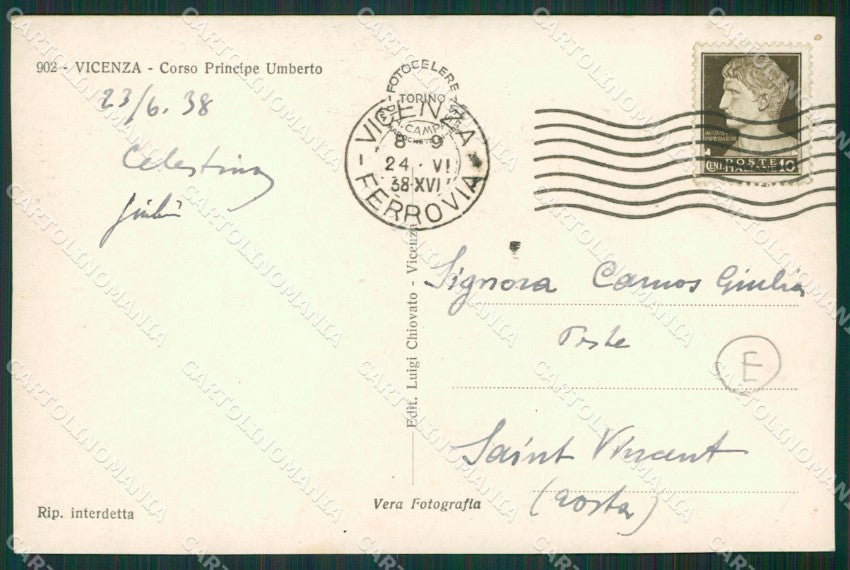 902 - VICENZA - Corso Principe Umberto
23/6. 38
Celestina
FOTOCELERE
TORINO
CAMPA
VICENZA
8 - 9
24 · VI
38·XVI
FERROVIA
POSTE
ITALIANE
CENT. 10
Signora Camos Giulia
Saint Vincent
(Aosta)
E
Edit. Luigi Chiovato - Vicenza
Rip. interdetta
Vera Fotografia
CARTOLINOMANIA